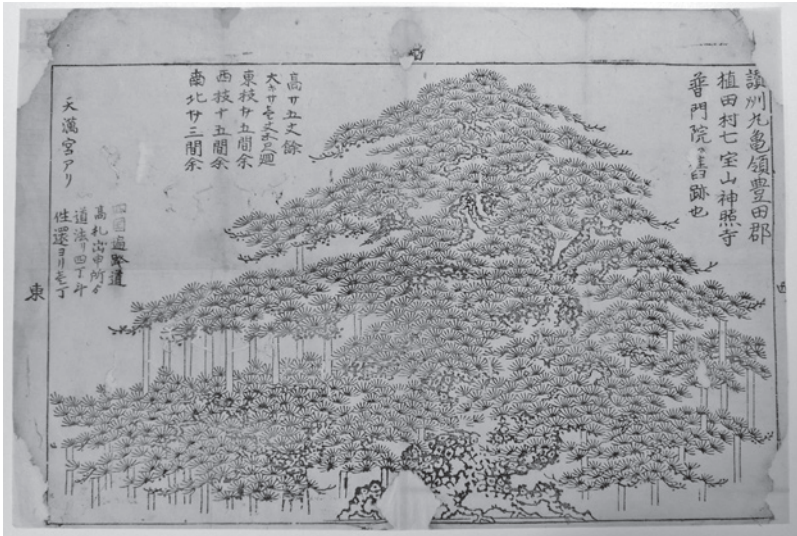 讃州丸亀領豊田郡
植田村七宝山神照寺
普門院ノ舊跡也
西
高廿五丈餘
大サ廿壱丈 廻
東枝廿五間余
西枝十五間余
南北廿三間余
天満宮アリ
遍路道
高札 申所ゟ
道法リ四丁斗
往還ヨリ壱丁
東